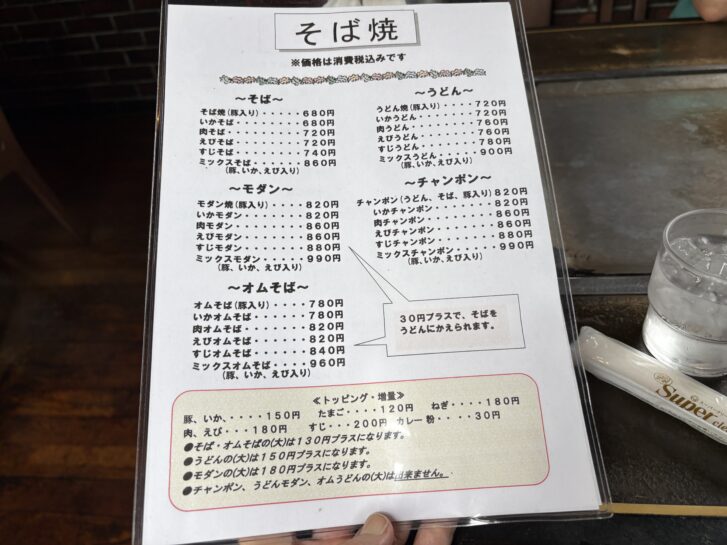 そば焼
※価格は消費税込みです
～そば～
そば焼(豚入り)・・・・・680円
いかそば・・・・・・・680円
肉そば・・・・・・・・720円
えびそば・・・・・・・720円
すじそば・・・・・・・740円
ミックスそば・・・・・860円
(豚、いか、えび入り)
～うどん～
うどん焼(豚入り)・・・・720円
いかうどん・・・・・・720円
肉うどん・・・・・・・760円
えびうどん・・・・・・760円
すじうどん・・・・・・780円
ミックスうどん・・・・900円
(豚、いか、えび入り)
～モダン～
モダン焼(豚入り)・・・・820円
いかモダン・・・・・・820円
肉モダン・・・・・・・860円
えびモダン・・・・・・860円
すじモダン・・・・・・880円
ミックスモダン・・・・990円
(豚、いか、えび入り)
～チャンポン～
チャンポン(うどん、そば、豚入り)820円
いかチャンポン・・・・・820円
肉チャンポン・・・・・・860円
えびチャンポン・・・・・860円
すじチャンポン・・・・・880円
ミックスチャンポン・・・990円
(豚、いか、えび入り)
～オムそば～
オムそば(豚入り)・・・・780円
いかオムそば・・・・・780円
肉オムそば・・・・・・820円
えびオムそば・・・・・820円
すじオムそば・・・・・840円
ミックスオムそば・・・960円
(豚、いか、えび入り)
30円プラスで、そばを
うどんにかえられます。
≪トッピング・増量≫
豚、いか、・・・・150円 たまご・・・・120円 ねぎ・・・・180円
肉、えび・・・・180円 すじ・・・200円 カレー粉・・・・・30円
●そば・オムそばの(大)は130円プラスになります。
●うどんの(大)は150円プラスになります。
●モダンの(大)は180円プラスになります。
●チャンポン、うどんモダン、オムうどんの(大)は出来ません。
Super